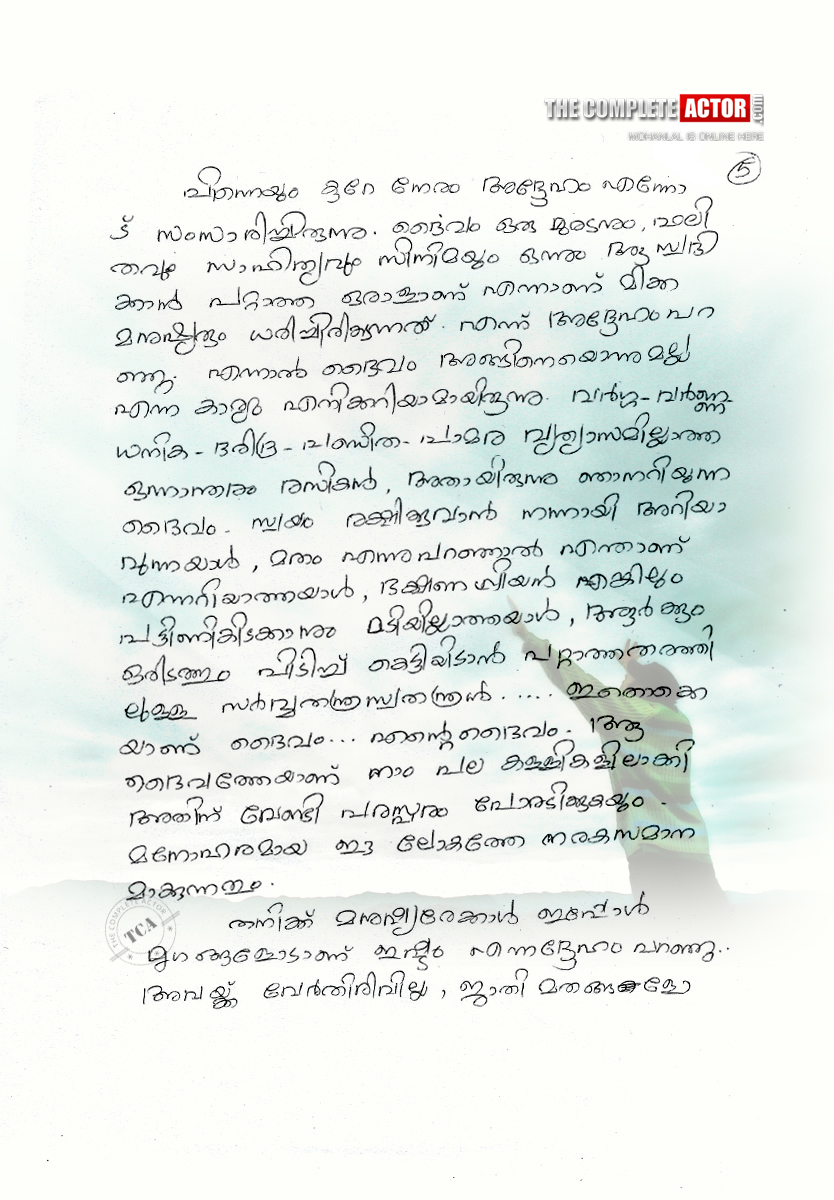 THE COMPLETE ACTOR.COM
MOHANLAL IS ONLINE HERE
5
പിന്നെയും കുറേ നേരം അദ്ദേഹം എന്നോ
ട് സംസാരിച്ചിരുന്നു. ദൈവം ഒരു മുരടനും, ഫലി
തവും സാഹിത്യവും സിനിമയും ഒന്നും ആസ്വദി
ക്കാൻ പറ്റാത്ത ഒരാളാണ് എന്നാണ് മിക്ക
മനുഷ്യരും ധരിച്ചിരിക്കുന്നത്. എന്ന് അദ്ദേഹം പറ
ഞ്ഞു. എന്നാൽ ദൈവം അങ്ങിനെയൊന്നുമല്ല
എന്ന കാര്യം എനിക്കറിയാമായിരുന്നു. വർഗ്ഗ-വർണ്ണ-
ധനിക-ദരിദ്ര-പണ്ഡിത-പാമര വ്യത്യാസമില്ലാത്ത
ഒന്നാന്തരം രസികൻ, അതായിരുന്നു ഞാനറിയുന്ന
ദൈവം. സ്വയം രക്ഷിക്കുവാൻ നന്നായി അറിയാ
വുന്നയാൾ, മതം എന്നുപറഞ്ഞാൽ എന്താണ്
എന്നറിയാത്തയാൾ, ദക്ഷിണ എങ്കിലും
പട്ടിണികിടക്കാനും മടിയില്ലാത്തയാൾ, ആർക്കും
ഒരിടത്തും പിടിച്ച് കെട്ടിയിടാൻ പറ്റാത്തതരത്തി
ലുള്ള സർവ്വതന്ത്രസ്വതന്ത്രൻ..... ഇതൊക്കെ
യാണ് ദൈവം... എന്റെ ദൈവം. ആ
ദൈവത്തേയാണ് നാം പല കള്ളികളിലാക്കി
അതിന് വേണ്ടി പരസ്പരം പോരടിക്കുകയും.
മനോഹരമായ ഈ ലോകത്തേ നരകസമാന
മാക്കുന്നതും.
തനിക്ക് മനുഷ്യരേക്കാൾ ഇപ്പോൾ
മൃഗങ്ങളോടാണ് ഇഷ്ടം എന്നദ്ദേഹം പറഞ്ഞു..
അവയ്ക്ക് വേർതിരിവില്ല, ജാതി മതങ്ങളോ
THE COMPLETE ACTOR
TCA